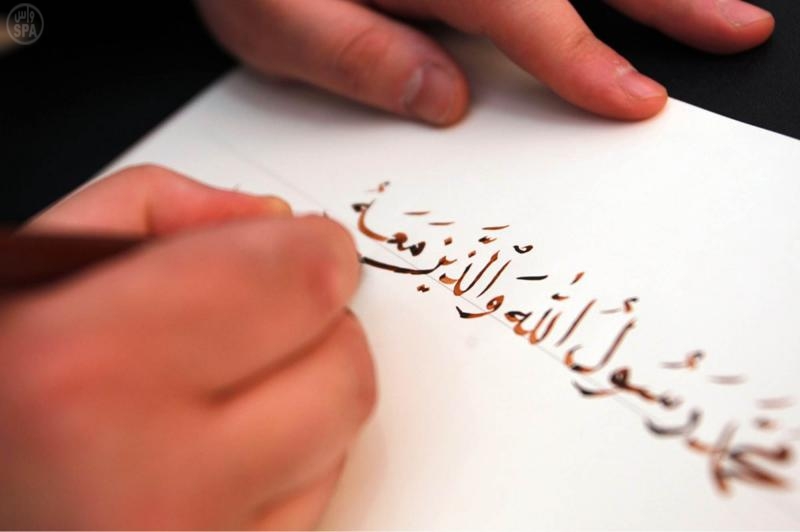 واس
SPA
محمد رسول الله والذين معه